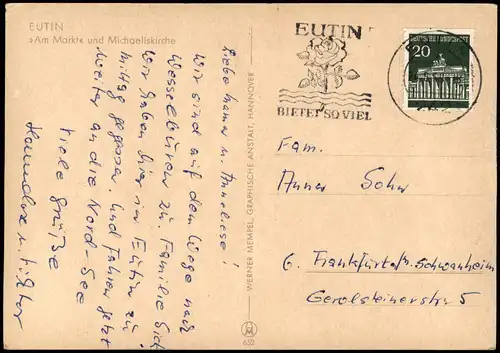 EUTIN
»Am Markt« und Michaeliskirche
Liebe Mama u. Anneliese!
Wir sind auf dem Wege nach
Wesselburen zu Familie
Wir haben hier in Eutin zu
Mittag gegessen. Und fahren jetzt
weiter an die Nord-See
Viele Grüße
Hannelore u.
WERNER MEMPEL, GRAPHISCHE ANSTALT, HANNOVER
652
EUTIN
BIETET SO VIEL
DEUTSCHE BUNDESPOST
20
Fam.
Anna Sohn
6. Frankfurt/M.-Schwanheim
Gerolsteinerstr. 5